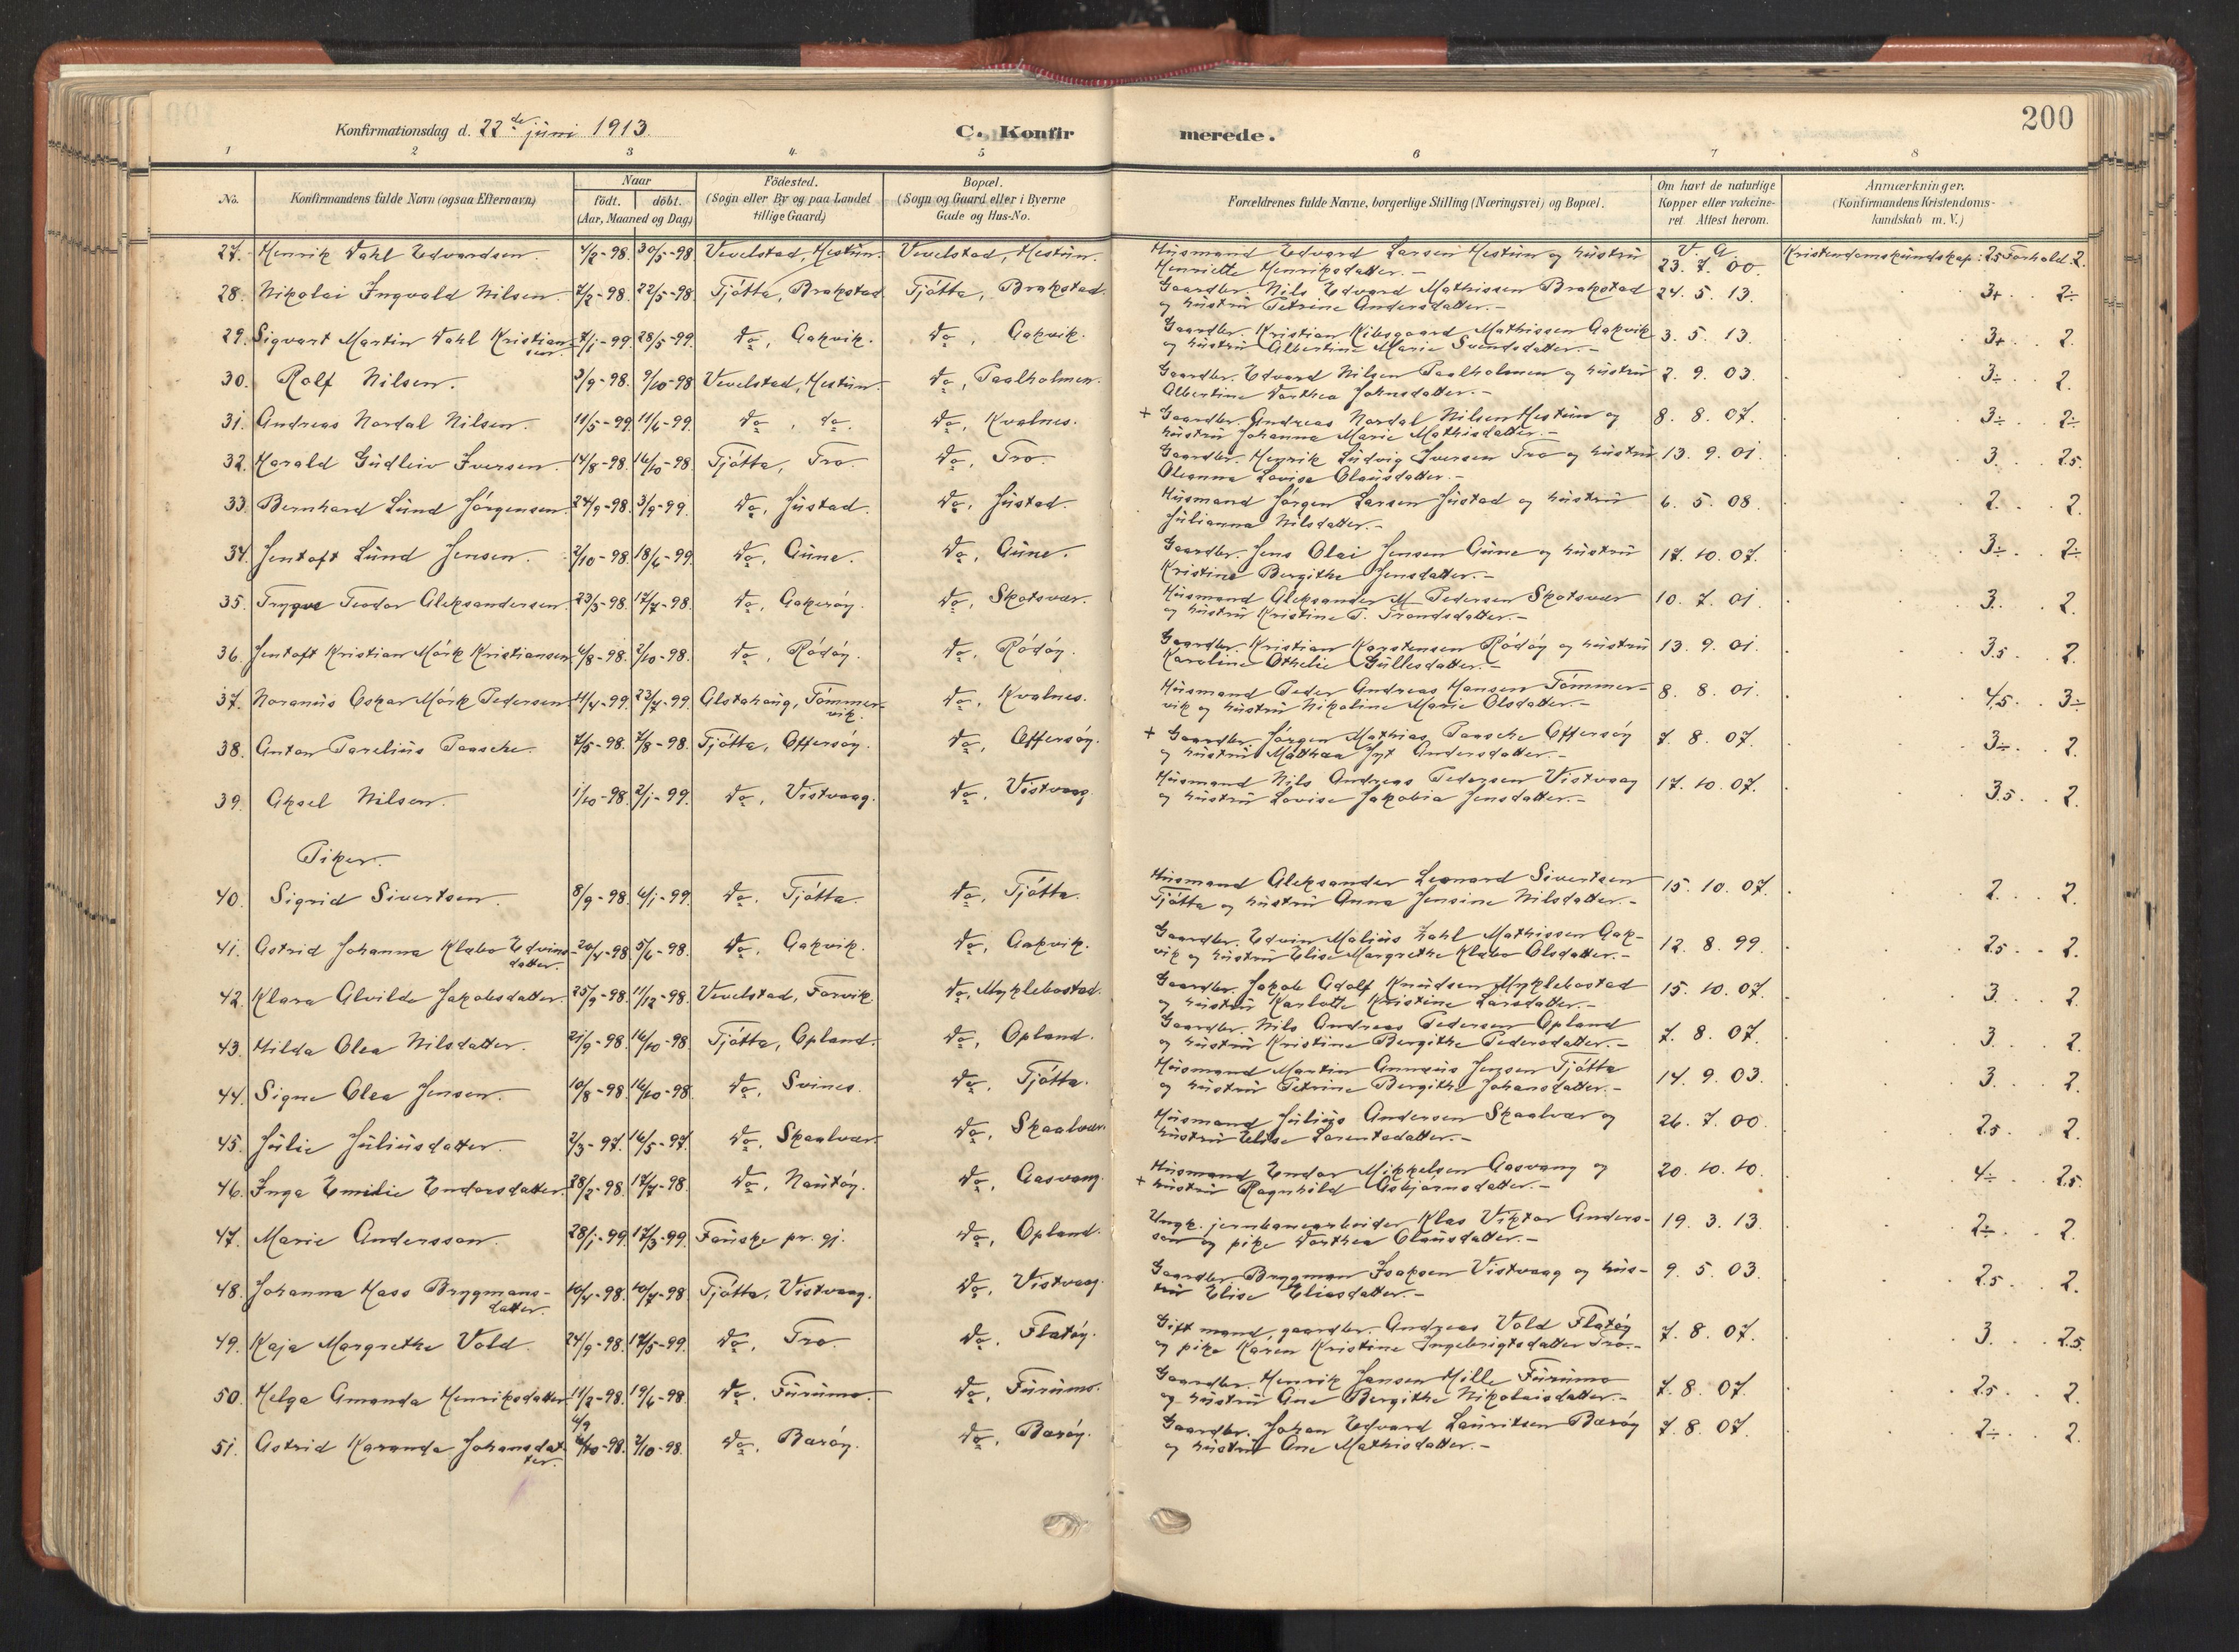 200
Konfirmationsdag d. 22de juni 1913.
C. Konfirmerede.
1 2 3 4 5 6 7 8
No. Konfirmandens fulde Navn (ogsaa Efternavn) Naar födt. döbt. (Aar, Maaned og Dag) Födested. (Sogn eller By og paa Landet tillige Gaard) Bopæl. (Sogn og Gaard eller i Byerne Gade og Hus-No. Forældrenes fulde Navne, borgerlige Stilling (Næringsvei) og Bopæl. Om havt de naturlige Kopper eller vakcineret Attest herom. Anmærkninger. (Konfirmandens Kristendomskundskab m. V.)
27. Henrik Dahl Edvardsen. 4/2-98. 30/5-98 Vevelstad, Hestun. Vevelstad, Hestun. Husmand Edvard Larsen Hestun og hustru V. a. Kristendomskundskap: 2.5 Forhold: 2.
Henriette Henriksdatter.- 23. 7. 00.
28. Nikolai Ingvald Nilsen. 7/2-98. 22/5-98. Tjótta, Brakstad Tjótta, Brakstad. Gaardbr. Nils Edvard Mathissen Brakstad 24. 5. 13. 3+ . . 2÷
og hustru Petrine Andersdatter.-
29. Sigvart Martin Dahl Kristian- 7/1-99. 28/5-99. Do, Aakvik. Do, Aakvik. Gaardbr. Kristian Kilsgaard Mathissen Aakvik 3. 5. 13. 3+ . . 2.
sen. og hustru Albertine Marie Svendsdatter.-
30. Rolf Nilsen. 3/9-98. 9/10-98 Vevelstad, Hestun. Do, Paalholmen. Gaardbr. Edvard Nilsen Paalholmen og hustru 2. 9. 03. 3÷ . . 2.
Albertine Dorthea Johnsdatter.-
31. Andreas Nordal Nilsen. 11/5-99. 11/6-99. Do, do. Do, Kvalnes. + Gaardbr. Andreas Nordal Nilsen Hestun og 8. 8. 07. 3÷ . . 2÷
hustru Johanna Marie Mathisdatter.-
32. Harald Gudleiv Iversen. 14/8-98. 16/10-98. Tjótta, Tro. Do, Tro. Gaardbr. Henrik Ludvig Iversen Tro og hustru 13. 9. 01. 3. . . 2.5.
Oleanna Lovise Olausdatter.-
33. Bernhard Lund Jórgensen. 24/9-98. 3/9-99. Do, Justad. Do, Justad. Husmand Jórgen Larsen Justad og hustru 6. 5. 08. 2. . . 2.
Julianna Nilsdatter.-
34. Jentoft Lund Jensen. 2/10-98. 18/6-99. Do, Aune. Do, Aune. Gaardbr. Jens Olai Jensen Aune og hustru 17. 10. 07. 3÷ . . 2÷
Kristine Bergithe Jensdatter.-
35. Trygve Teodor Aleksandersen. 23/5-98. 17/7-98. Do, Aakeróy. Do, Skotsvær. Husmand Aleksander M Pedersen Skotsvær 10. 7. 01. 3. . . 2.
og hustru Kristine T. Trondsdatter.-
36. Jentoft Kristian Mórk Kristiansen 6/8-98. 2/10-98. Do, Ródóy. Do, Ródóy. Gaardbr. Kristian Karstensen Ródóy og hustru 13. 9. 01. 3.5 . . 2.
Karoline Othelie Gullesdatter.-
37. Noranus Oskar Mórk Pedersen 11/4-99. 23/7-99. Alstahaug, Tómmer- Do, Kvalnes. Husmand Peder Andreas Hansen Tómmer- 8. 8. 01. 4.5. . 3÷
vik. vik og hustru Nikoline Marie Olsdatter.-
38. Anton Parelius Paasche. 7/5-98. 7/8-98. Tjótta, Offersóy. Do, Offersóy. + Gaardbr. Jórgen Mathias Paasche Offersóy 7. 8. 07. 3÷ . . 2.
og hustru Matthea Jyt Andersdatter.-
39. Aksel Nilsen. 1/10-98. 2/1-99. Do, Vistvaag. Do, Vistvaag. Husmand Nils Andreas Pedersen Vistvaag 17. 10. 07. 3.5. . . 2.
og hustru Lovise Jakobia Jensdatter.-
Piker.
40. Sigrid Sivertsen. 8/9-98. 6/1-99. Do, Tjótta. Do, Tjótta. Husmand Aleksander Leonard Sivertsen 15. 10. 07. 2. . . 2.
Tjótta og hustru Anna Jensine Nilsdatter.-
41. Astrid Johanna Klabo Edvins- 20/4-98. 5/6-98. Do, Aakvik. Do, Aakvik. Gaardbr. Edvin Malius Dahl Mathissen Aak- 12. 8. 99. 2.5 . . 2.
datter. vik og hustru Elise Margrethe Klabo Olsdatter.-
42. Klara Alvilde Jakobsdatter. 25/9-98. 11/12-98. Vevelstad, Forvik. Do, Myklebostad. Gaardbr. Jakob Adolf Knudsen Myklebostad 15. 10. 07. 3. . . 2.
og hustru Karlotte Kristine Larsdatter.-
43. Hilda Olea Nilsdatter. 21/9-98. 16/10-98. Tjótta, Opland. Do, Opland. Gaardbr. Nils Andreas Pedersen Opland 7. 8. 07. 3. . . 2.
og hustru Kristine Bergithe Pedersdatter.-
44. Signe Olea Jensen. 10/8-98. 16/10-98. Do, Svines. Do, Tjótta. Husmand Martin Annæus Jensen Tjótta 14. 9. 03. 3. . . 2.
og hustru Petrine Bergithe Johansdatter.-
45. Julie Juliusdatter. 2/3-97. 16/5-97. Do, Skaalvær. Do, Skaalvær. Husmand Julius Andersen Skaalvær og 26. 7. 00. 2.5. . 2.
hustru Elise Larentsdatter.-
46. Inga Emilie Endorsdatter. 28/2-98. 17/7-98. Do, Nautóy. Do, Aasvang. Husmand Endor Mikkelsen Aasvang og 20. 10. 10. 4÷ . . 2.5.
+ hustru Ragnhild Asbjórnsdatter.-
47. Marie Andersson. 28/1-99. 17/3-99. Fauske pr. gj. Do, Opland. Ungk. jernbanearbeider Klas Viktor Anders- 19. 3. 13. 2÷ . . 2.
son og pike Dorthea Olausdatter.-
48. Johanna Hass Brygmans- 10/4-98. 10/7-98. Tjótta, Vistvaag. Do, Vistvaag. Gaardbr Brygman Isaksen Vistvaag og hus- 9. 5. 03. 2.5 . . 2.
datter. tru Elise Eliasdatter.-
49. Kaja Margrethe Vold. 24/9-98. 17/5-99. Do, Tro. Do, Flatóy. Gift mand, gaardbr. Andreas Vold Flatóy 7. 8. 07. 3. . . 2.5.
og pike Karen Kristine Ingebrigtsdatter Tro.-
50. Helga Amanda Henriksdatter. 11/2-98. 19/6-98. Do, Furumo. Do, Furumo. Gaardbr. Henrik Jansen Hille Furumo 7. 8. 07. 2.5 . . 2.
og hustru Ane Bergithe Nikolaisdatter.-
51. Astrid Karanda Johansdat- 4/9 98. 2/10-98. Do, Baróy. Do, Baróy. Gaardbr. Johan Edvard Lauritsen Baróy 7. 8. 07. 2÷ . . 2.
ter. og hustru Ane Mathisdatter.-